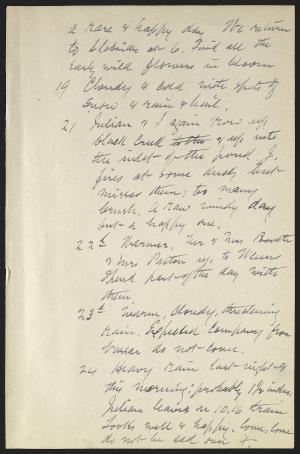 a rare & happy day. We return
to Slabsides at 6. Find all the
early wild flowers in bloom
19 Cloudy & cold with spits of
snow & rain & hail.
21 Julian & I again row up
black Creek to the & up into
the inlet of the pond. J.
fires at some ducks but
misses them; too many
brush. A raw windy day
but a happy one.
22d Warmer, Mr & Mrs Booth
& Mrs up, to
spend part of the day with
them.
23d Warm, cloudy, threatening
rain. Expected company from
Vassar do not come.
24 Heavy rain last night &
this morning; probably 1½ inches.
Julian leaves on 10.16 train
looks well & happy. Come, come
do not be sad over it.